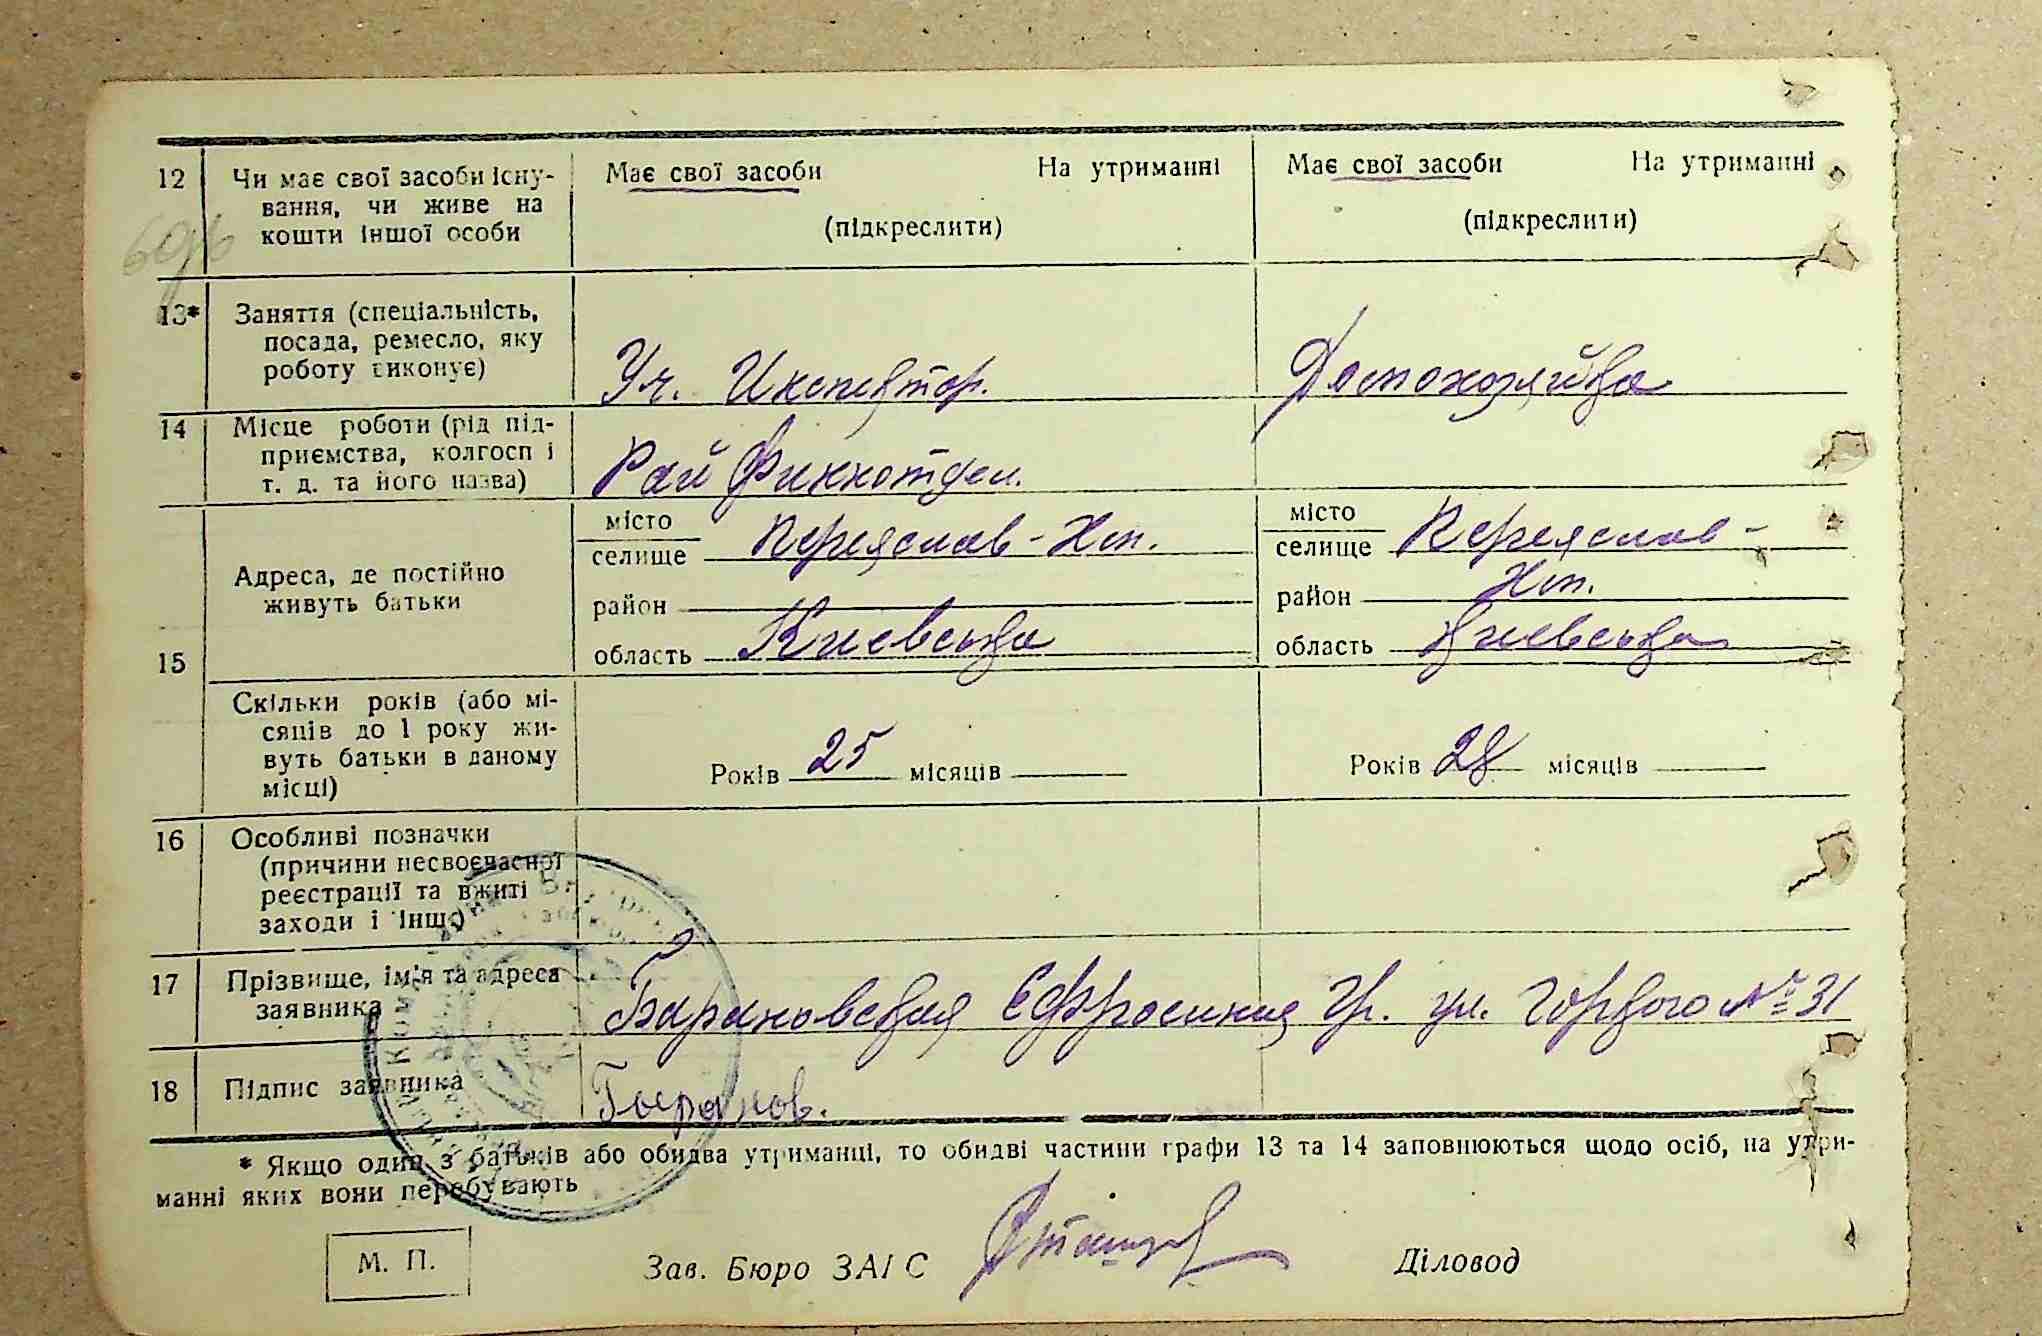 12 Чи має свої засоби існу-
вання, чи живе на
кошти іншої особи
Має свої засоби На утриманні
(підкреслити)
Має свої засоби На утриманні
(підкреслити)
13* Заняття (спеціальність,
посада, ремесло, яку
роботу виконує)
Уч. Инспектор.
Домохозяйка
14 Місце роботи (рід під-
приємства, колгосп і
т. д. та його назва)
Рай Финнотдел.
15 Адреса, де постійно
живуть батьки
місто
селище Переяслав-Хм.
район
область Киевська
місто
селище Переяслав-
район Хм.
область Киевська
Скільки років (або мі-
сяців до 1 року жи-
вуть батьки в даному
місці)
Років 25 місяців
Років 28 місяців
16 Особливі позначки
(причини несвоєчасної
реєстрації та вжиті
заходи і інш.)
17 Прізвище, ім'я та адреса
заявника
Барановская Ефросиния Гр. ул. Горького № 31
18 Підпис заявника
Баранов.
* Якщо один з батьків або обидва утриманці, то обидві частини графи 13 та 14 заповнюються щодо осіб, на утри-
манні яких вони перебувають
М. П.
Зав. Бюро ЗАГС
Діловод